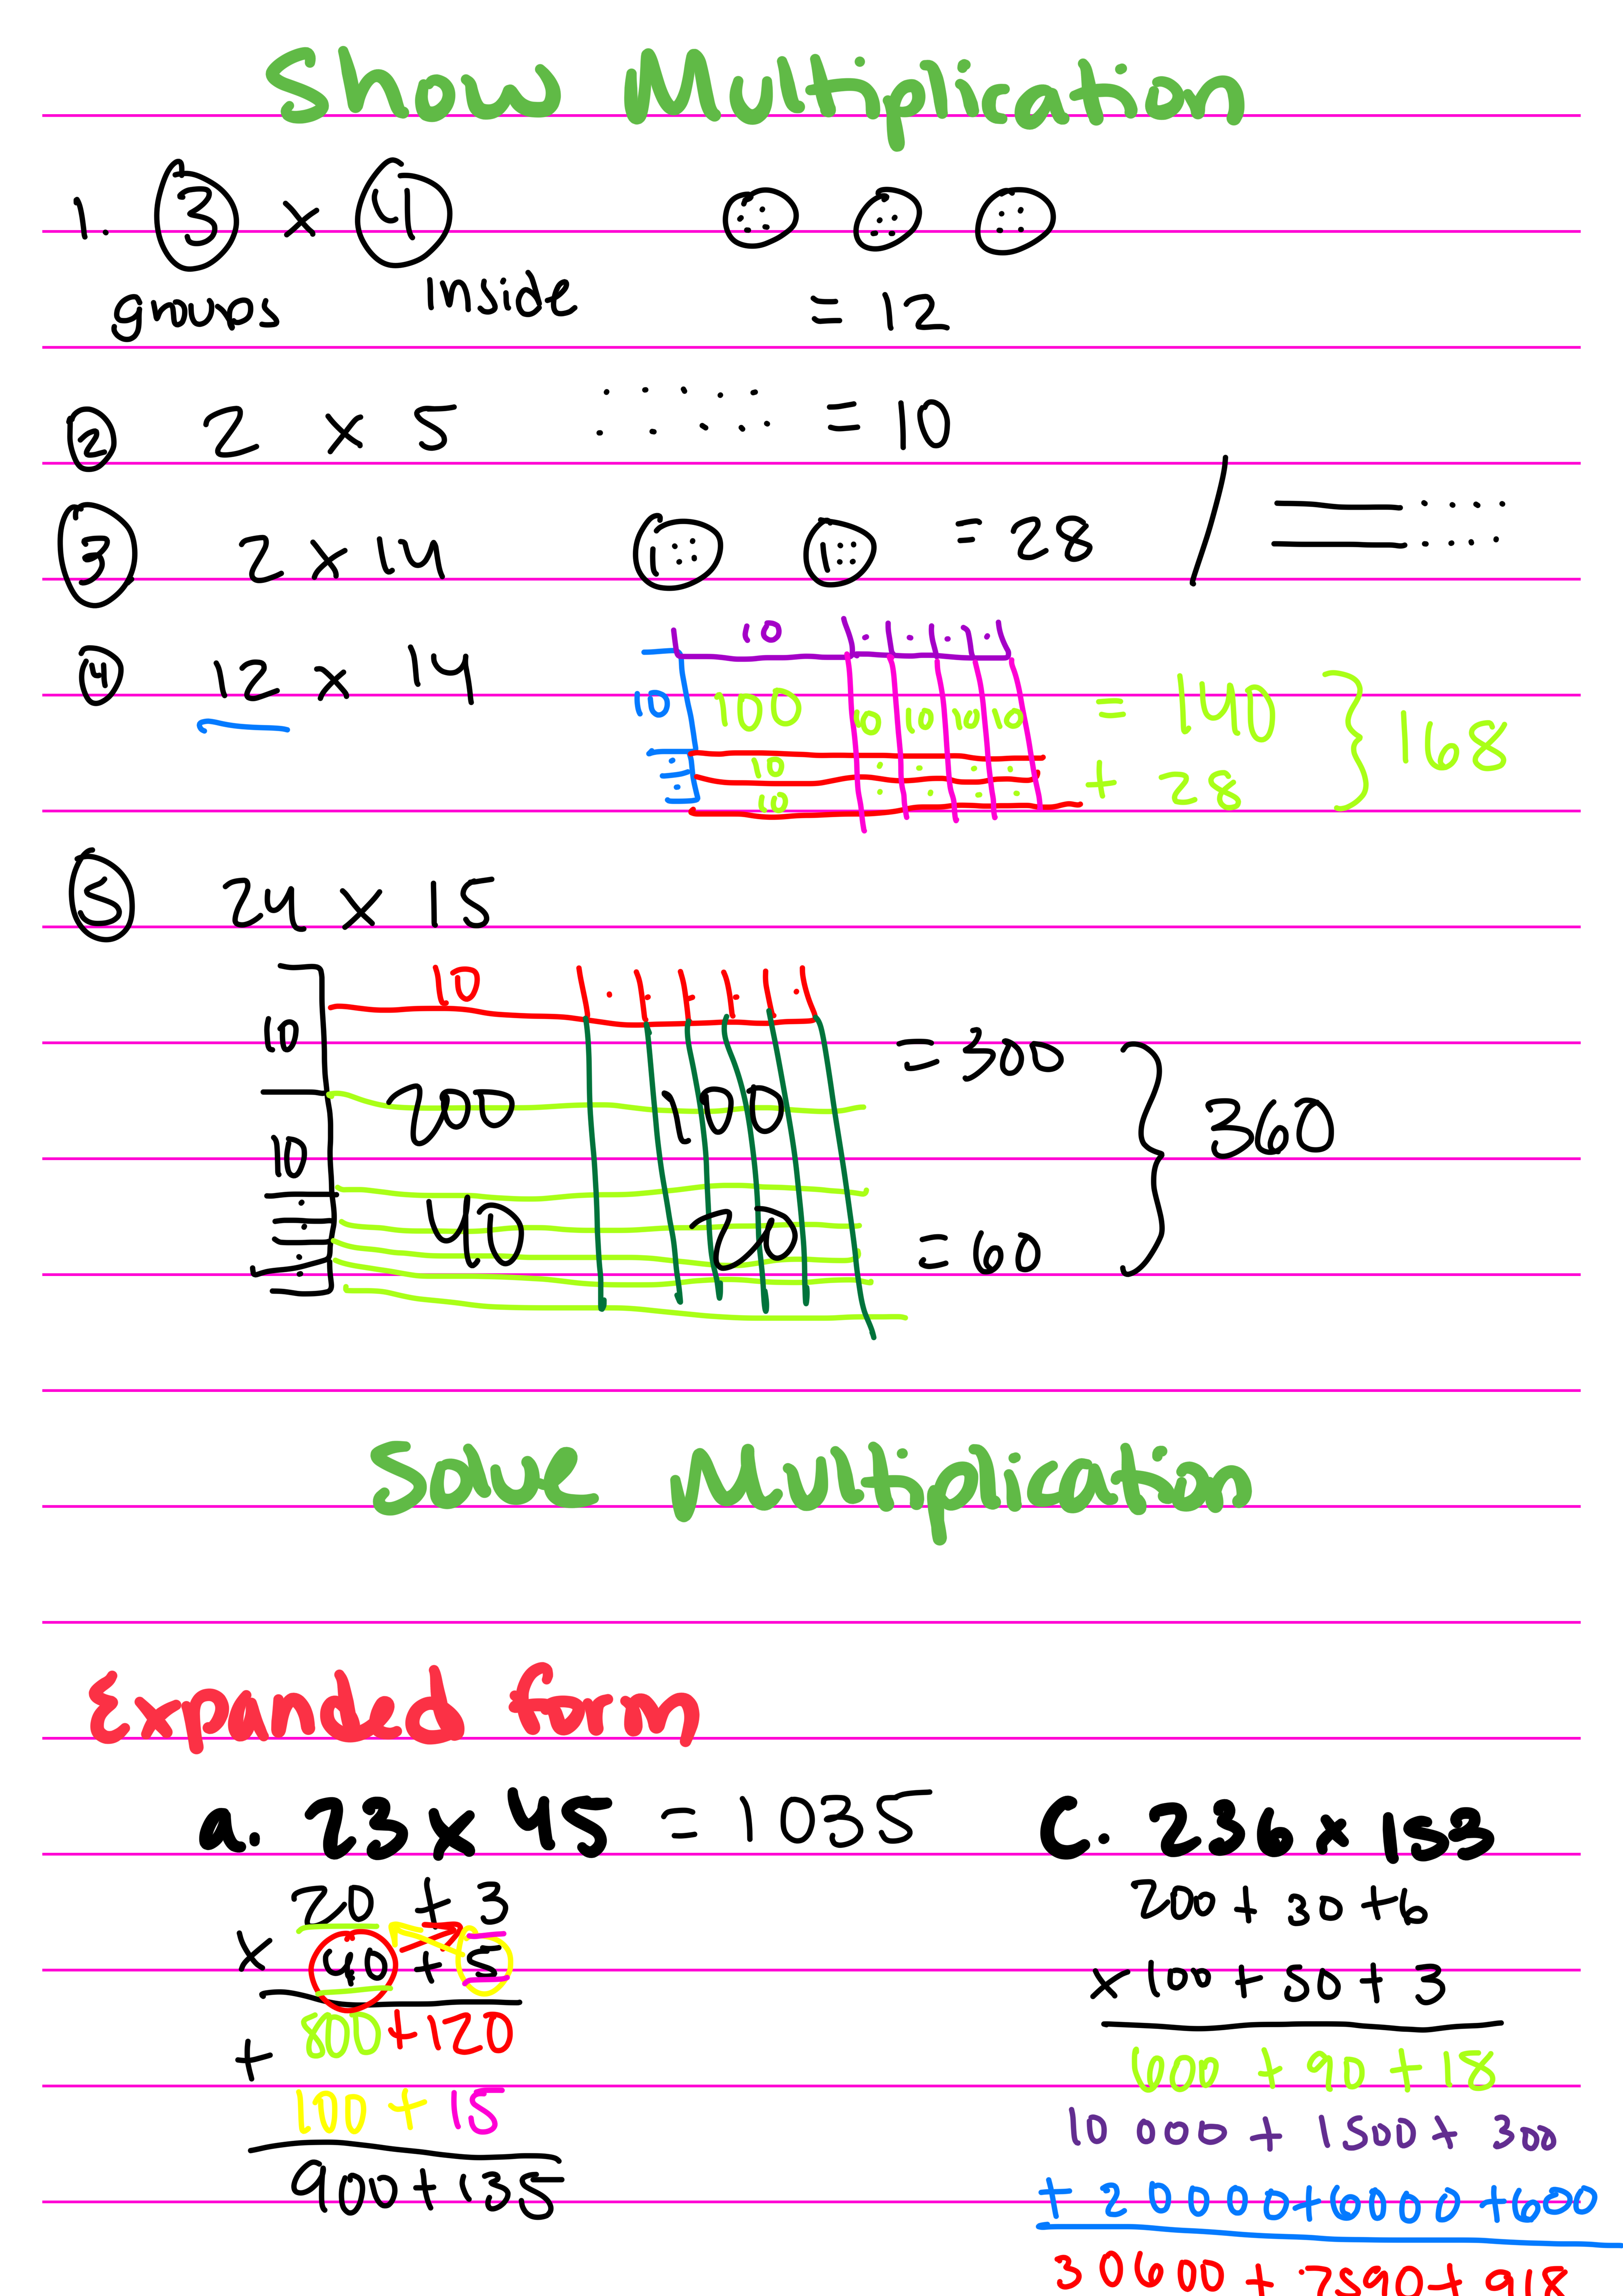 Show Multiplication
1. 3 x 4
groups inside = 12
2 2 x 5 = 10
3 2 x 14 = 28
4 12 x 14
10
10 100 10 10 10 10 = 140
10
10
+ 28
168
5 24 x 15
10
10
200 100 = 300
10
40 20 = 60
360
Solve Multiplication
Expanded form
a. 23 x 45 = 1035
20 + 3
x 40 + 5
800 + 120
+
100 + 15
900 + 135
C. 236 x 153
200 + 30 + 6
x 100 + 50 + 3
600 + 90 + 18
10 000 + 1500 + 300
+ 20000 + 6000 + 600
30600 + 7590 + 918